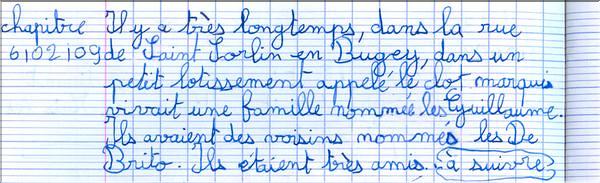 chapitre Il y a très longtemps, dans la rue
6102109 de Saint Sorlin en Bugey, dans un
petit lotissement appelé le clot marquis
vivait une famille nommée les Guillaume.
Ils avaient des voisins nommés les De
Brito. Ils etaient très amis. (à suivre)